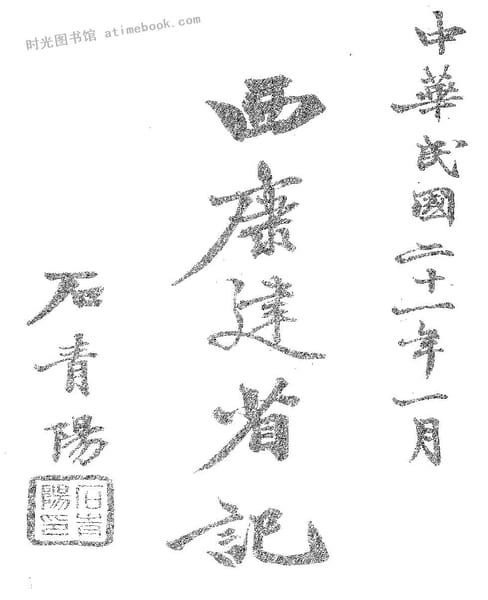 时光图书馆 atimebook.com
中華民國二十一年一月
西康建省記
石青陽
石青陽印